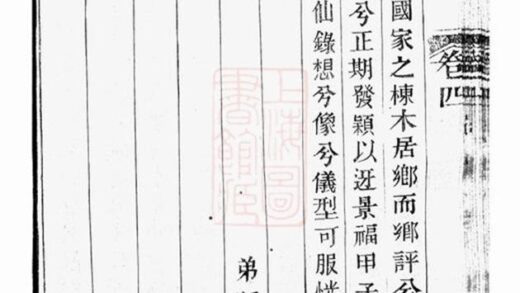 卷四
國家之棟木居鄉而鄉評兮
兮正期發穎以迓景福甲子
仙錄想兮像兮儀型可服
弟
上海圖書館藏